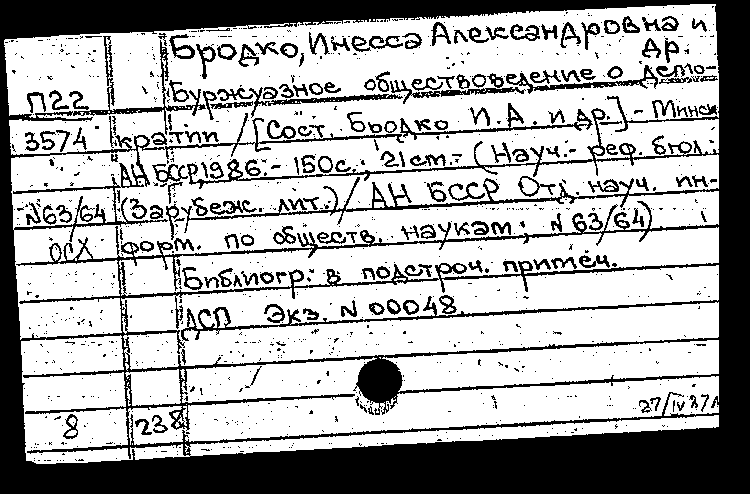 Бродко, Инесса Александровна и
др.
Буржуазное обществоведение о демо-
П22
3574 кратии / [Сост. Бродко И.А. и др.] - Минск
АН БССР, 1986. - 150с.; 21см. - (Науч.-реф. бюл.:
N63/64 (Зарубеж. лит.) / АН БССР Отд. науч. ин-
ОСХ форм. по обществ. наукам; N 63/64)
Библиогр: в подстроч. примеч.
ДСП Экз. N 00048.
8 238 27/IV 87